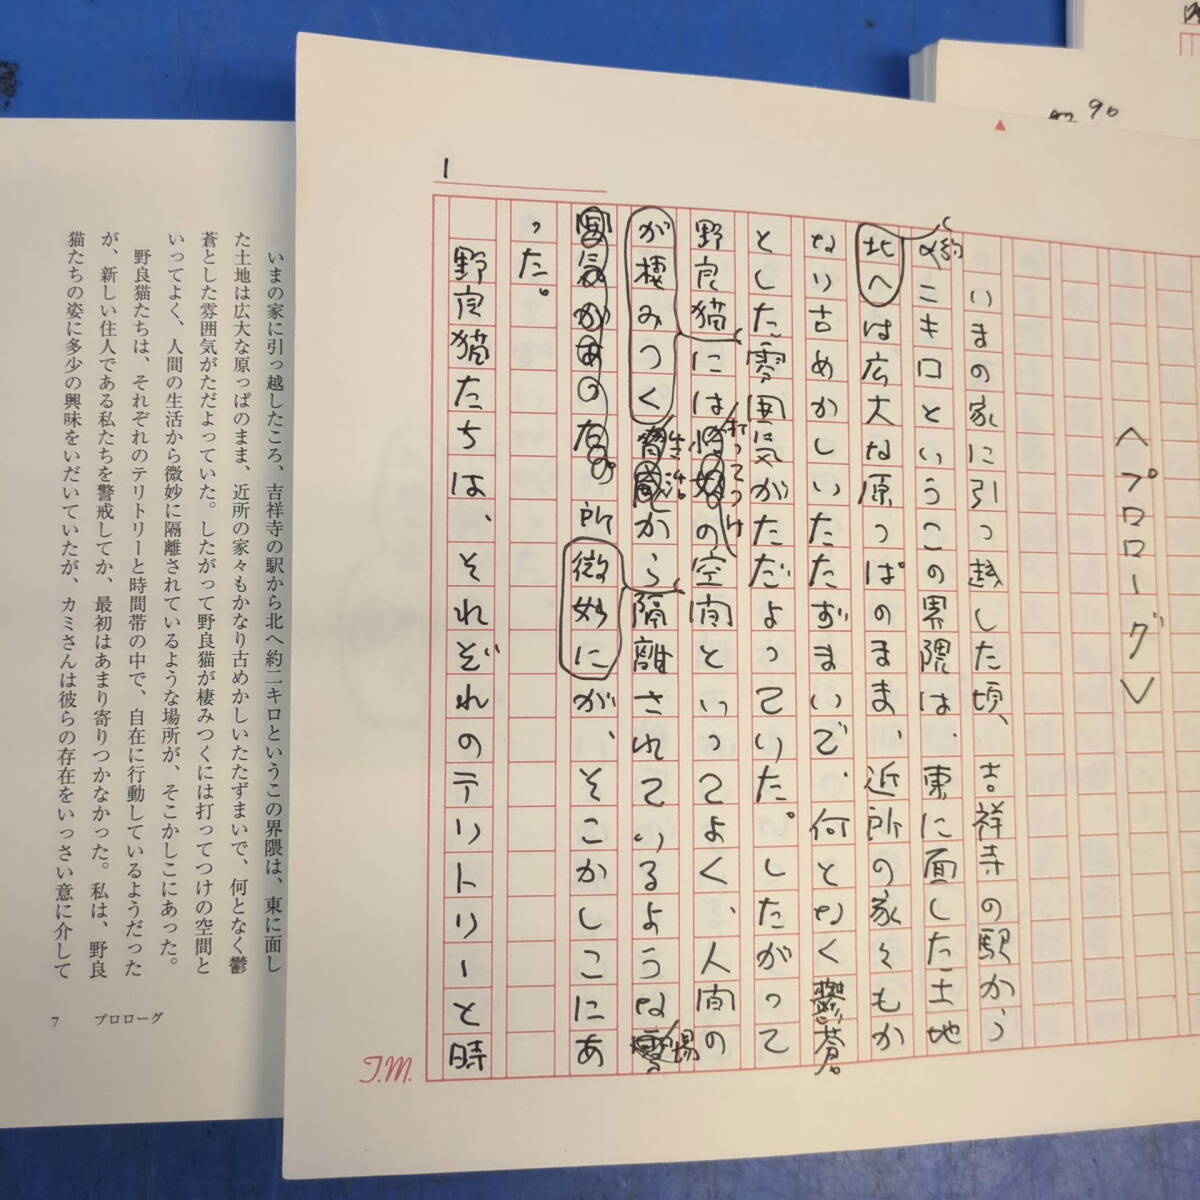 90
1
〈プロローグ〉
いまの家に引っ越した頃、吉祥寺の駅から
約二キロというこの界隈は、東に面した土地
北へは広大な原っぱのまま、近所の家々もか
なり古めかしいたたずまいで、何となく鬱蒼
とした雰囲気がただよっていた。したがって
野良猫には打ってつけの空間といってよく、人間の
が棲みつく生活から隔離されているような場
所微妙にが、そこかしこにあ
った。
野良猫たちは、それぞれのテリトリーと時
T.M.
いまの家に引っ越したころ、吉祥寺の駅から北へ約二キロというこの界隈は、東に面し
た土地は広大な原っぱのまま、近所の家々もかなり古めかしいたたずまいで、何となく鬱
蒼とした雰囲気がただよっていた。したがって野良猫が棲みつくには打ってつけの空間と
いってよく、人間の生活から微妙に隔離されているような場所が、そこかしこにあった。
野良猫たちは、それぞれのテリトリーと時間帯の中で、自在に行動しているようだった
が、新しい住人である私たちを警戒してか、最初はあまり寄りつかなかった。私は、野良
猫たちの姿に多少の興味をいだいていたが、カミさんは彼らの存在をいっさい意に介して
7 プロローグ